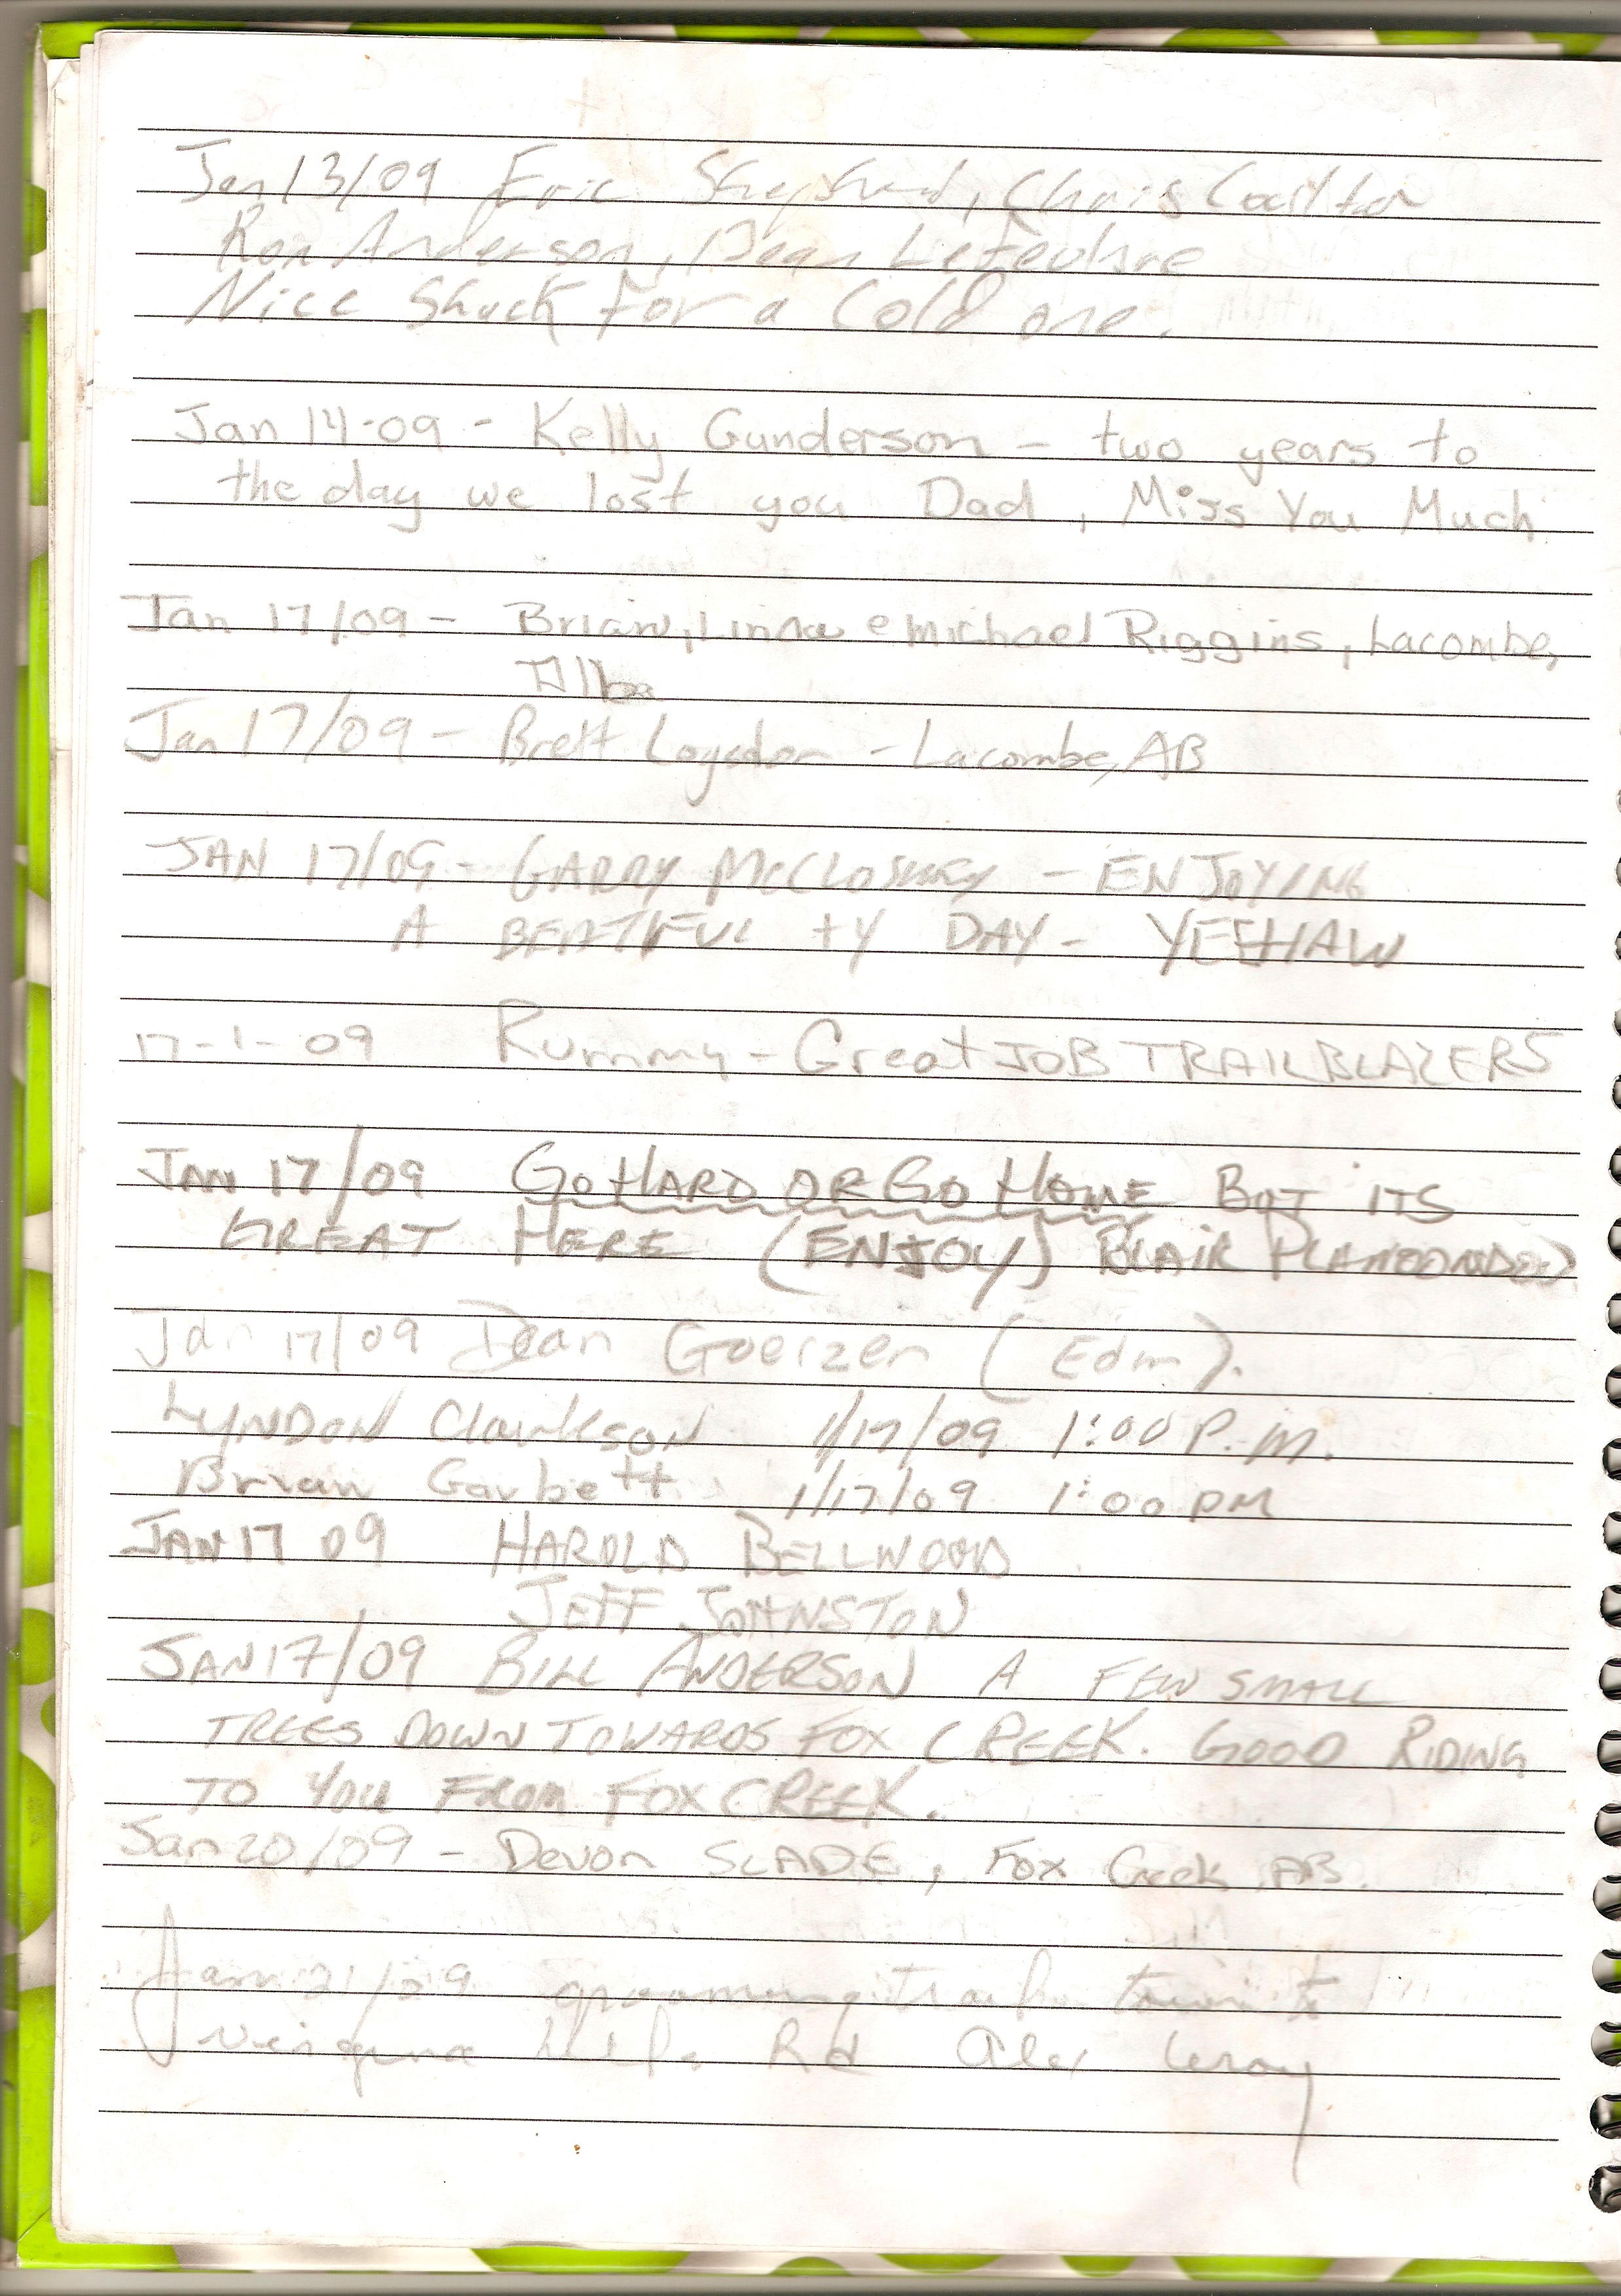 Jan 13/09 Eric Shepherd, Chris Coulton
Ron Anderson, Dean Lefeubre
Nice Shack for a Cold one.
Jan 14-09 - Kelly Gunderson - two years to
the day we lost you Dad, Miss You Much
Jan 17/09 - Brian, Linda e Michael Riggins, Lacombe,
Alba
Jan 17/09 - Brett Logsdon - Lacombe, AB
JAN 17/09 - GARRY McCLOSKEY - ENJOYING
A DAY - YEEHAW
17-1-09 Rummy - Great JOB TRAILBLAZERS
JAN 17/09 GO HARD OR GO HOME BUT ITS
GREAT HERE (ENJOY) BLAIR PLAMONDON
Jan 17/09 Dean Goerzen (Edm).
LYNDON Clarkson 1/17/09 1:00 P.M.
Brian Garbett 1/17/09 1:00 PM
JAN 17 09 HAROLD BELLWOOD
JEFF JOHNSTON
JAN 17/09 BILL ANDERSON A FEW SMALL
TREES DOWN TOWARDS FOX CREEK. GOOD RIDING
TO YOU FROM FOX CREEK.
Jan 20/09 - Devon SLADE, Fox Creek AB.
Jan 21/09 grooming trails town to
Virginia Hills Rd Alex Leroy